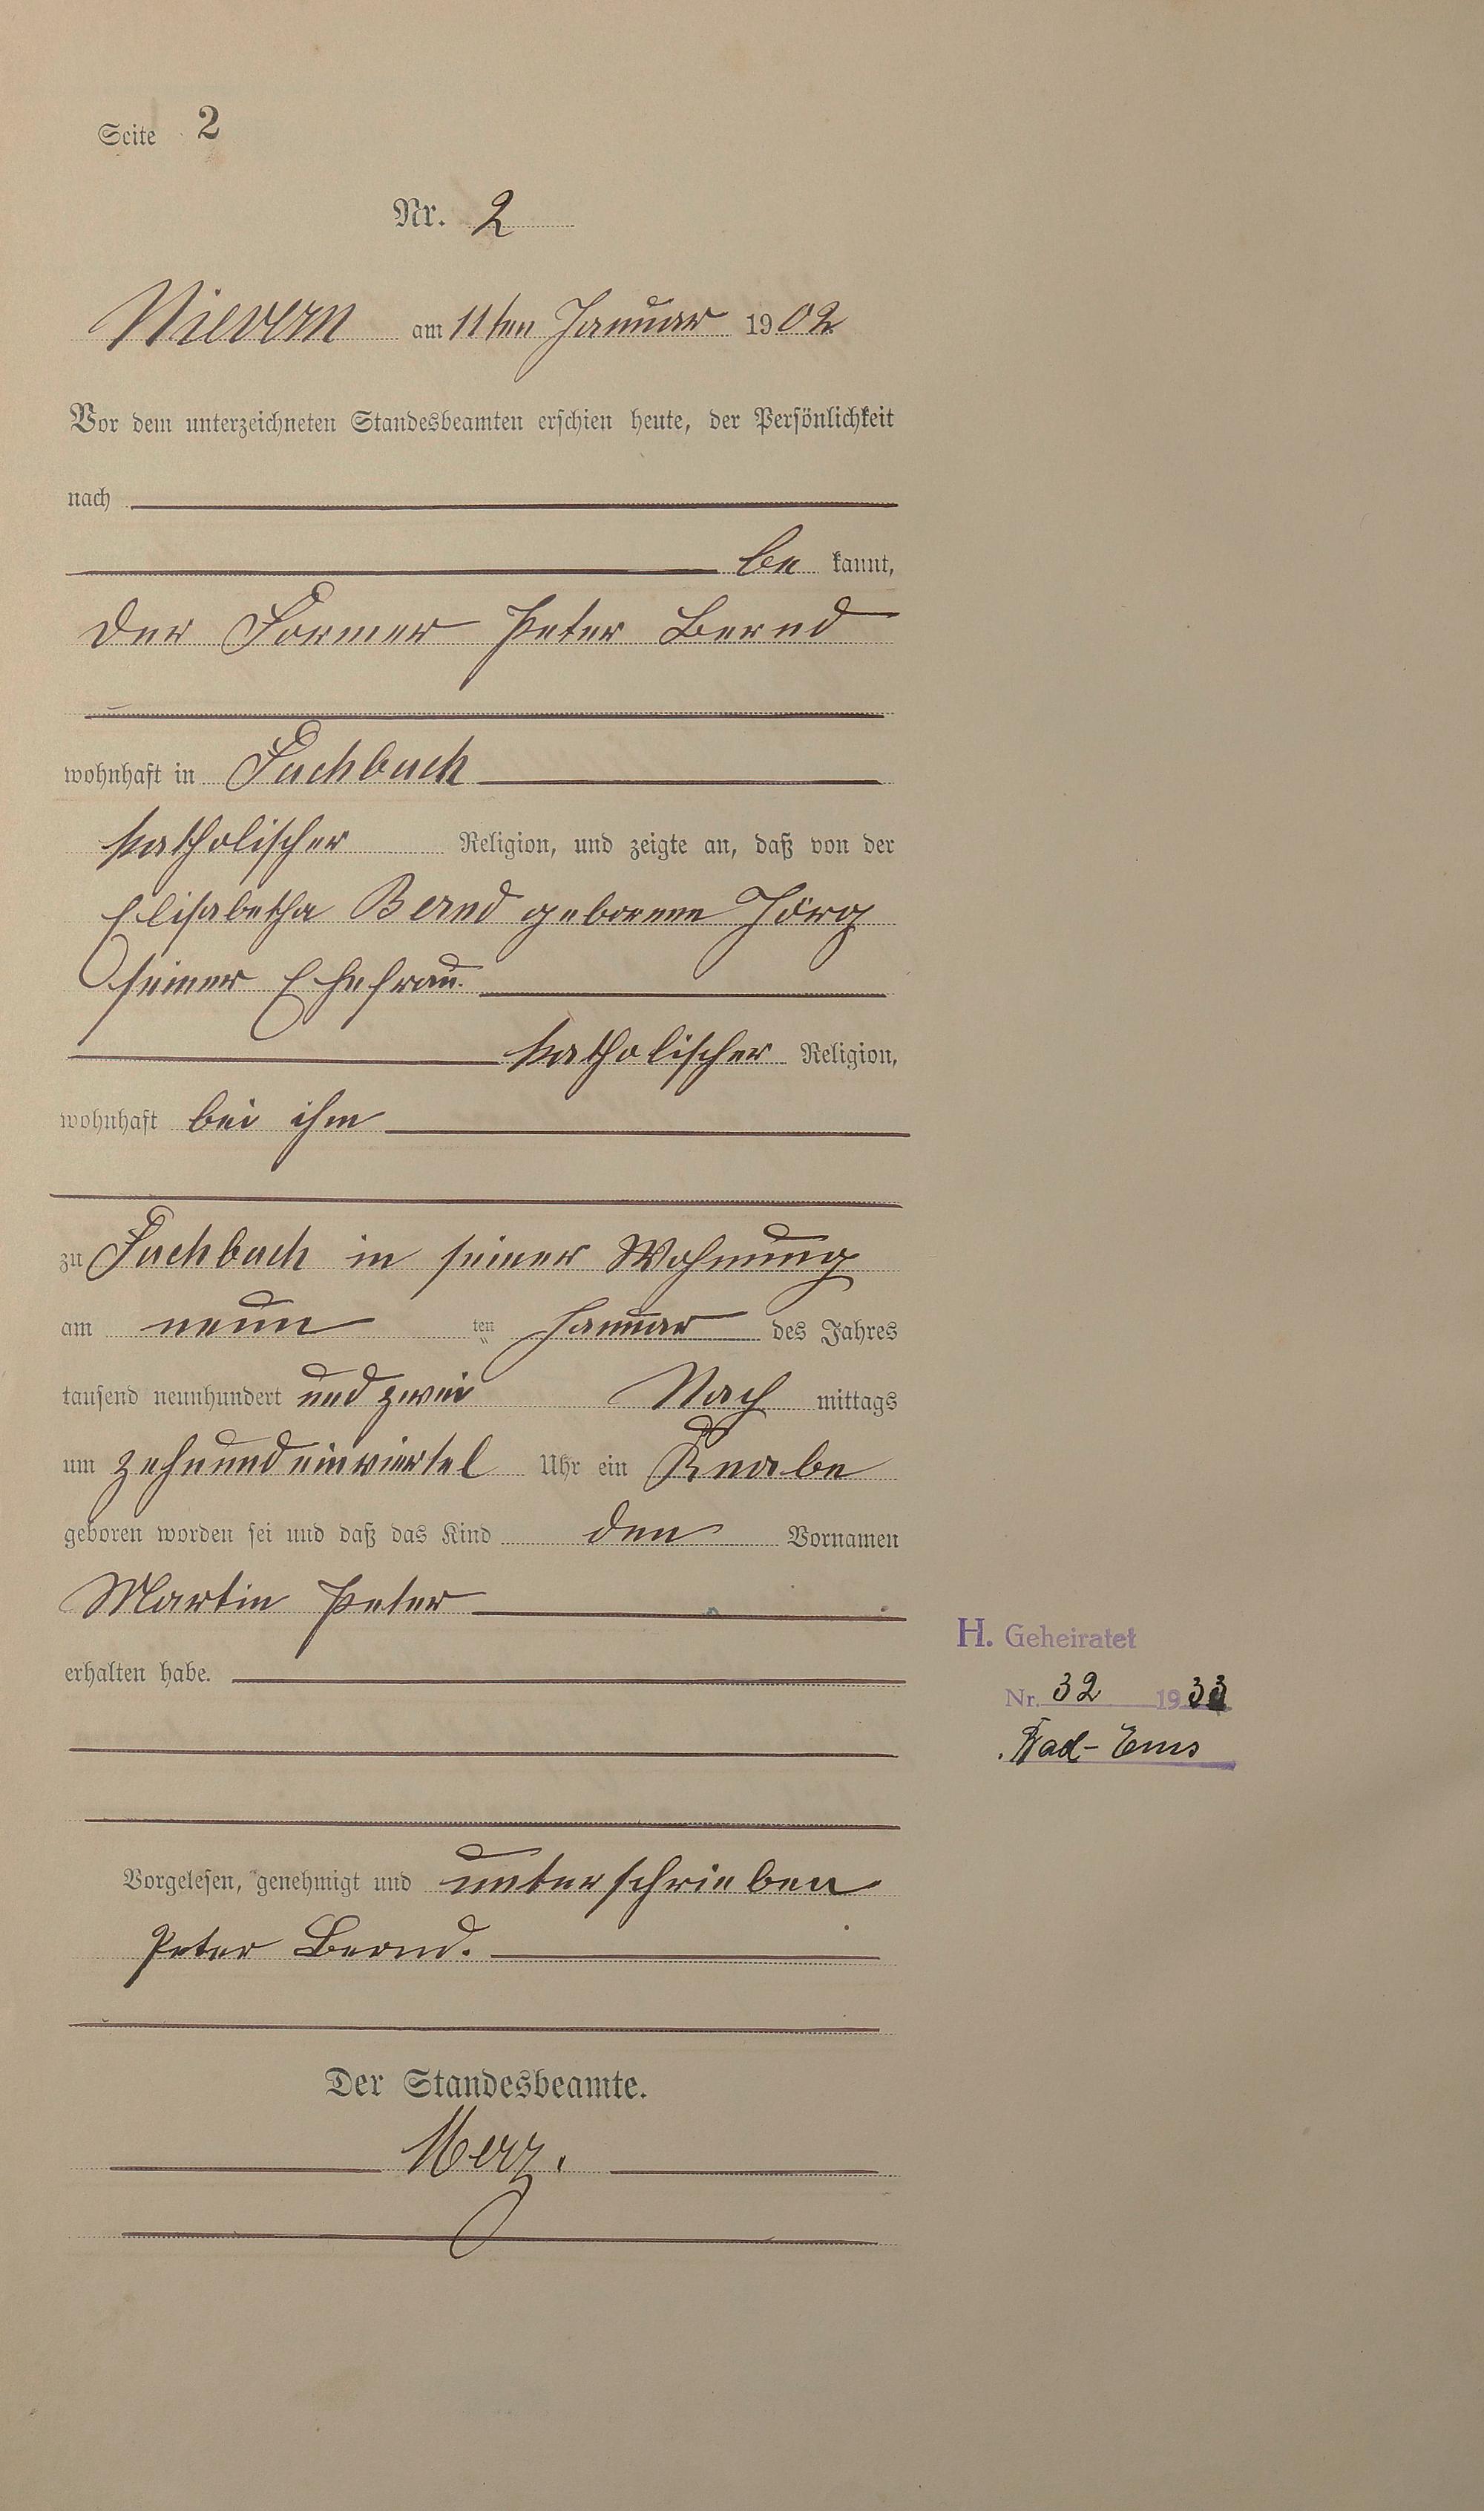 Seite 2
Nr. 2
Nievern am 11ten Januar 1902
Vor dem unterzeichneten Standesbeamten erschien heute, der Persönlichkeit
nach
be kannt,
der Former Peter Bernd
wohnhaft in Fachbach
katholischer Religion, und zeigte an, daß von der
Elisabetha Bernd geborenen Jörg
seiner Ehefrau.
katholischer Religion,
wohnhaft bei ihm
zu Fachbach in seiner Wohnung
am neun ten Januar des Jahres
tausend neunhundert und zwei Nach mittags
um zehnundeinviertel Uhr ein Knabe
geboren worden sei und daß das Kind den Vornamen
Martin Peter
erhalten habe.
H. Geheiratet
Nr. 32 1933
Bad-Ems
Vorgelesen, genehmigt und unterschrieben
Peter Bernd.
Der Standesbeamte.
Merz.